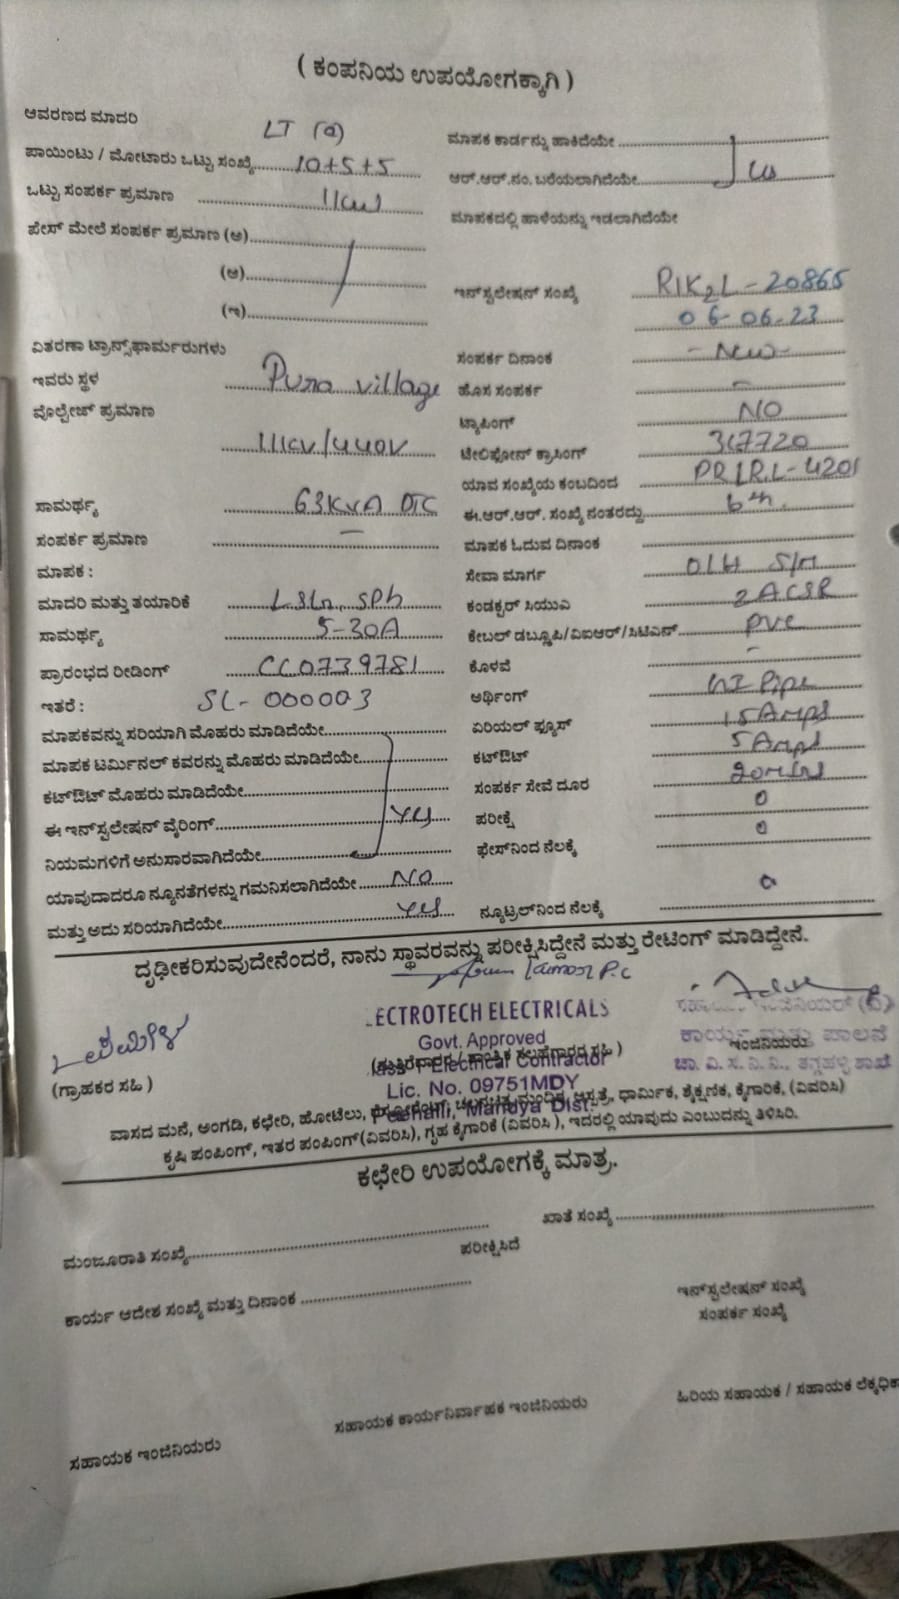 ( ಕಂಪನಿಯ ಉಪಯೋಗಕ್ಕಾಗಿ )
ಆವರಣದ ಮಾದರಿ LT (a)
ಪಾಯಿಂಟು / ಮೋಟಾರು ಒಟ್ಟು ಸಂಖ್ಯೆ 10+5+5
ಒಟ್ಟು ಸಂಪರ್ಕ ಪ್ರಮಾಣ 1kw
ಪೇಸ್ ಮೇಲೆ ಸಂಪರ್ಕ ಪ್ರಮಾಣ (ಅ)
(ಆ)
(ಇ)
ವಿತರಣಾ ಟ್ರಾನ್ಸ್‌ಫಾರ್ಮರುಗಳು
ಇವರು ಸ್ಥಳ Pura village
ವೊಲ್ಟೇಜ್ ಪ್ರಮಾಣ
11kv/440V
ಸಾಮರ್ಥ್ಯ 63KVA DTC
ಸಂಪರ್ಕ ಪ್ರಮಾಣ –
ಮಾಪಕ :
ಮಾದರಿ ಮತ್ತು ತಯಾರಿಕೆ SPh
ಸಾಮರ್ಥ್ಯ 5-30A
ಪ್ರಾರಂಭದ ರೀಡಿಂಗ್ CC0739781
ಇತರೆ : SL-000003
ಮಾಪಕವನ್ನು ಸರಿಯಾಗಿ ಮೊಹರು ಮಾಡಿದೆಯೇ
ಮಾಪಕ ಟರ್ಮಿನಲ್ ಕವರನ್ನು ಮೊಹರು ಮಾಡಿದೆಯೇ
ಕಟ್‌ಔಟ್ ಮೊಹರು ಮಾಡಿದೆಯೇ
ಈ ಇನ್‌ಸ್ಟಲೇಷನ್ ವೈರಿಂಗ್ Yes
ನಿಯಮಗಳಿಗೆ ಅನುಸಾರವಾಗಿದೆಯೇ
ಯಾವುದಾದರೂ ನ್ಯೂನತೆಗಳನ್ನು ಗಮನಿಸಲಾಗಿದೆಯೇ NO
ಮತ್ತು ಅದು ಸರಿಯಾಗಿದೆಯೇ Yes
ಮಾಪಕ ಕಾರ್ಡನ್ನು ಹಾಕಿದೆಯೇ
ಆರ್.ಆರ್.ನಂ. ಬರೆಯಲಾಗಿದೆಯೇ
ಮಾಪಕದಲ್ಲಿ ಹಾಳೆಯನ್ನು ಇಡಲಾಗಿದೆಯೇ
ಇನ್‌ಸ್ಟಲೇಷನ್ ಸಂಖ್ಯೆ R1K2L-20865
06-06-23
ಸಂಪರ್ಕ ದಿನಾಂಕ - New -
ಹೊಸ ಸಂಪರ್ಕ –
ಟ್ಯಾಪಿಂಗ್ NO
ಟೆಲಿಫೋನ್ ಕ್ರಾಸಿಂಗ್ 367720
ಯಾವ ಸಂಖ್ಯೆಯ ಕಂಬದಿಂದ
ಈ.ಆರ್.ಆರ್. ಸಂಖ್ಯೆ ನಂತರದ್ದು 6th.
ಮಾಪಕ ಓದುವ ದಿನಾಂಕ
ಸೇವಾ ಮಾರ್ಗ O/H S/M
ಕಂಡಕ್ಟರ್ ಸಿಯುಎ 2ACSR
ಕೇಬಲ್ ಡಬ್ಲೂಪಿ/ವಿಐಆರ್/ಸಿಟಿಎಸ್ PVC
ಕೊಳವೆ -
ಅರ್ಥಿಂಗ್ GI Pipe
ಏರಿಯಲ್ ಫ್ಯೂಸ್ 15Amps
ಕಟ್‌ಔಟ್ 5Amps
ಸಂಪರ್ಕ ಸೇವೆ ದೂರ
ಪರೀಕ್ಷೆ 0
ಫೇಸ್‌ನಿಂದ ನೆಲಕ್ಕೆ 0
ನ್ಯೂಟ್ರಲ್‌ನಿಂದ ನೆಲಕ್ಕೆ 0
ದೃಢೀಕರಿಸುವುದೇನೆಂದರೆ, ನಾನು ಸ್ಥಾವರವನ್ನು ಪರೀಕ್ಷಿಸಿದ್ದೇನೆ ಮತ್ತು ರೇಟಿಂಗ್ ಮಾಡಿದ್ದೇನೆ.
Kumar P.C
ECTROTECH ELECTRICALS
Govt. Approved
Electrical Contractor
Lic. No. 09751MDY
Mandya Dist.
(ಗುತ್ತಿಗೆದಾರರ / ತಾಂತ್ರಿಕ ಸಲಹೆಗಾರರ ಸಹಿ )
ಕಾರ್ಯ ಮತ್ತು ಪಾಲನೆ
ಇಂಜಿನಿಯರು
ಚಾ.ವಿ.ಸ.ನಿ.ನಿ., ಶಾಖೆ
(ಗ್ರಾಹಕರ ಸಹಿ )
ವಾಸದ ಮನೆ, ಅಂಗಡಿ, ಕಛೇರಿ, ಹೋಟೆಲು, ಆಸ್ಪತ್ರೆ, ಧಾರ್ಮಿಕ, ಶೈಕ್ಷಣಿಕ, ಕೈಗಾರಿಕೆ, (ವಿವರಿಸಿ)
ಕೃಷಿ ಪಂಪಿಂಗ್, ಇತರ ಪಂಪಿಂಗ್(ವಿವರಿಸಿ), ಗೃಹ ಕೈಗಾರಿಕೆ (ವಿವರಿಸಿ ), ಇದರಲ್ಲಿ ಯಾವುದು ಎಂಬುದನ್ನು ತಿಳಿಸಿರಿ.
ಕಛೇರಿ ಉಪಯೋಗಕ್ಕೆ ಮಾತ್ರ.
ಮಂಜೂರಾತಿ ಸಂಖ್ಯೆ
ಖಾತೆ ಸಂಖ್ಯೆ
ಪರೀಕ್ಷಿಸಿದೆ
ಕಾರ್ಯ ಆದೇಶ ಸಂಖ್ಯೆ ಮತ್ತು ದಿನಾಂಕ
ಇನ್‌ಸ್ಟಲೇಷನ್ ಸಂಖ್ಯೆ
ಸಂಪರ್ಕ ಸಂಖ್ಯೆ
ಸಹಾಯಕ ಇಂಜಿನಿಯರು
ಸಹಾಯಕ ಕಾರ್ಯನಿರ್ವಾಹಕ ಇಂಜಿನಿಯರು
ಹಿರಿಯ ಸಹಾಯಕ / ಸಹಾಯಕ ಲೆಕ್ಕಧಿಕಾ